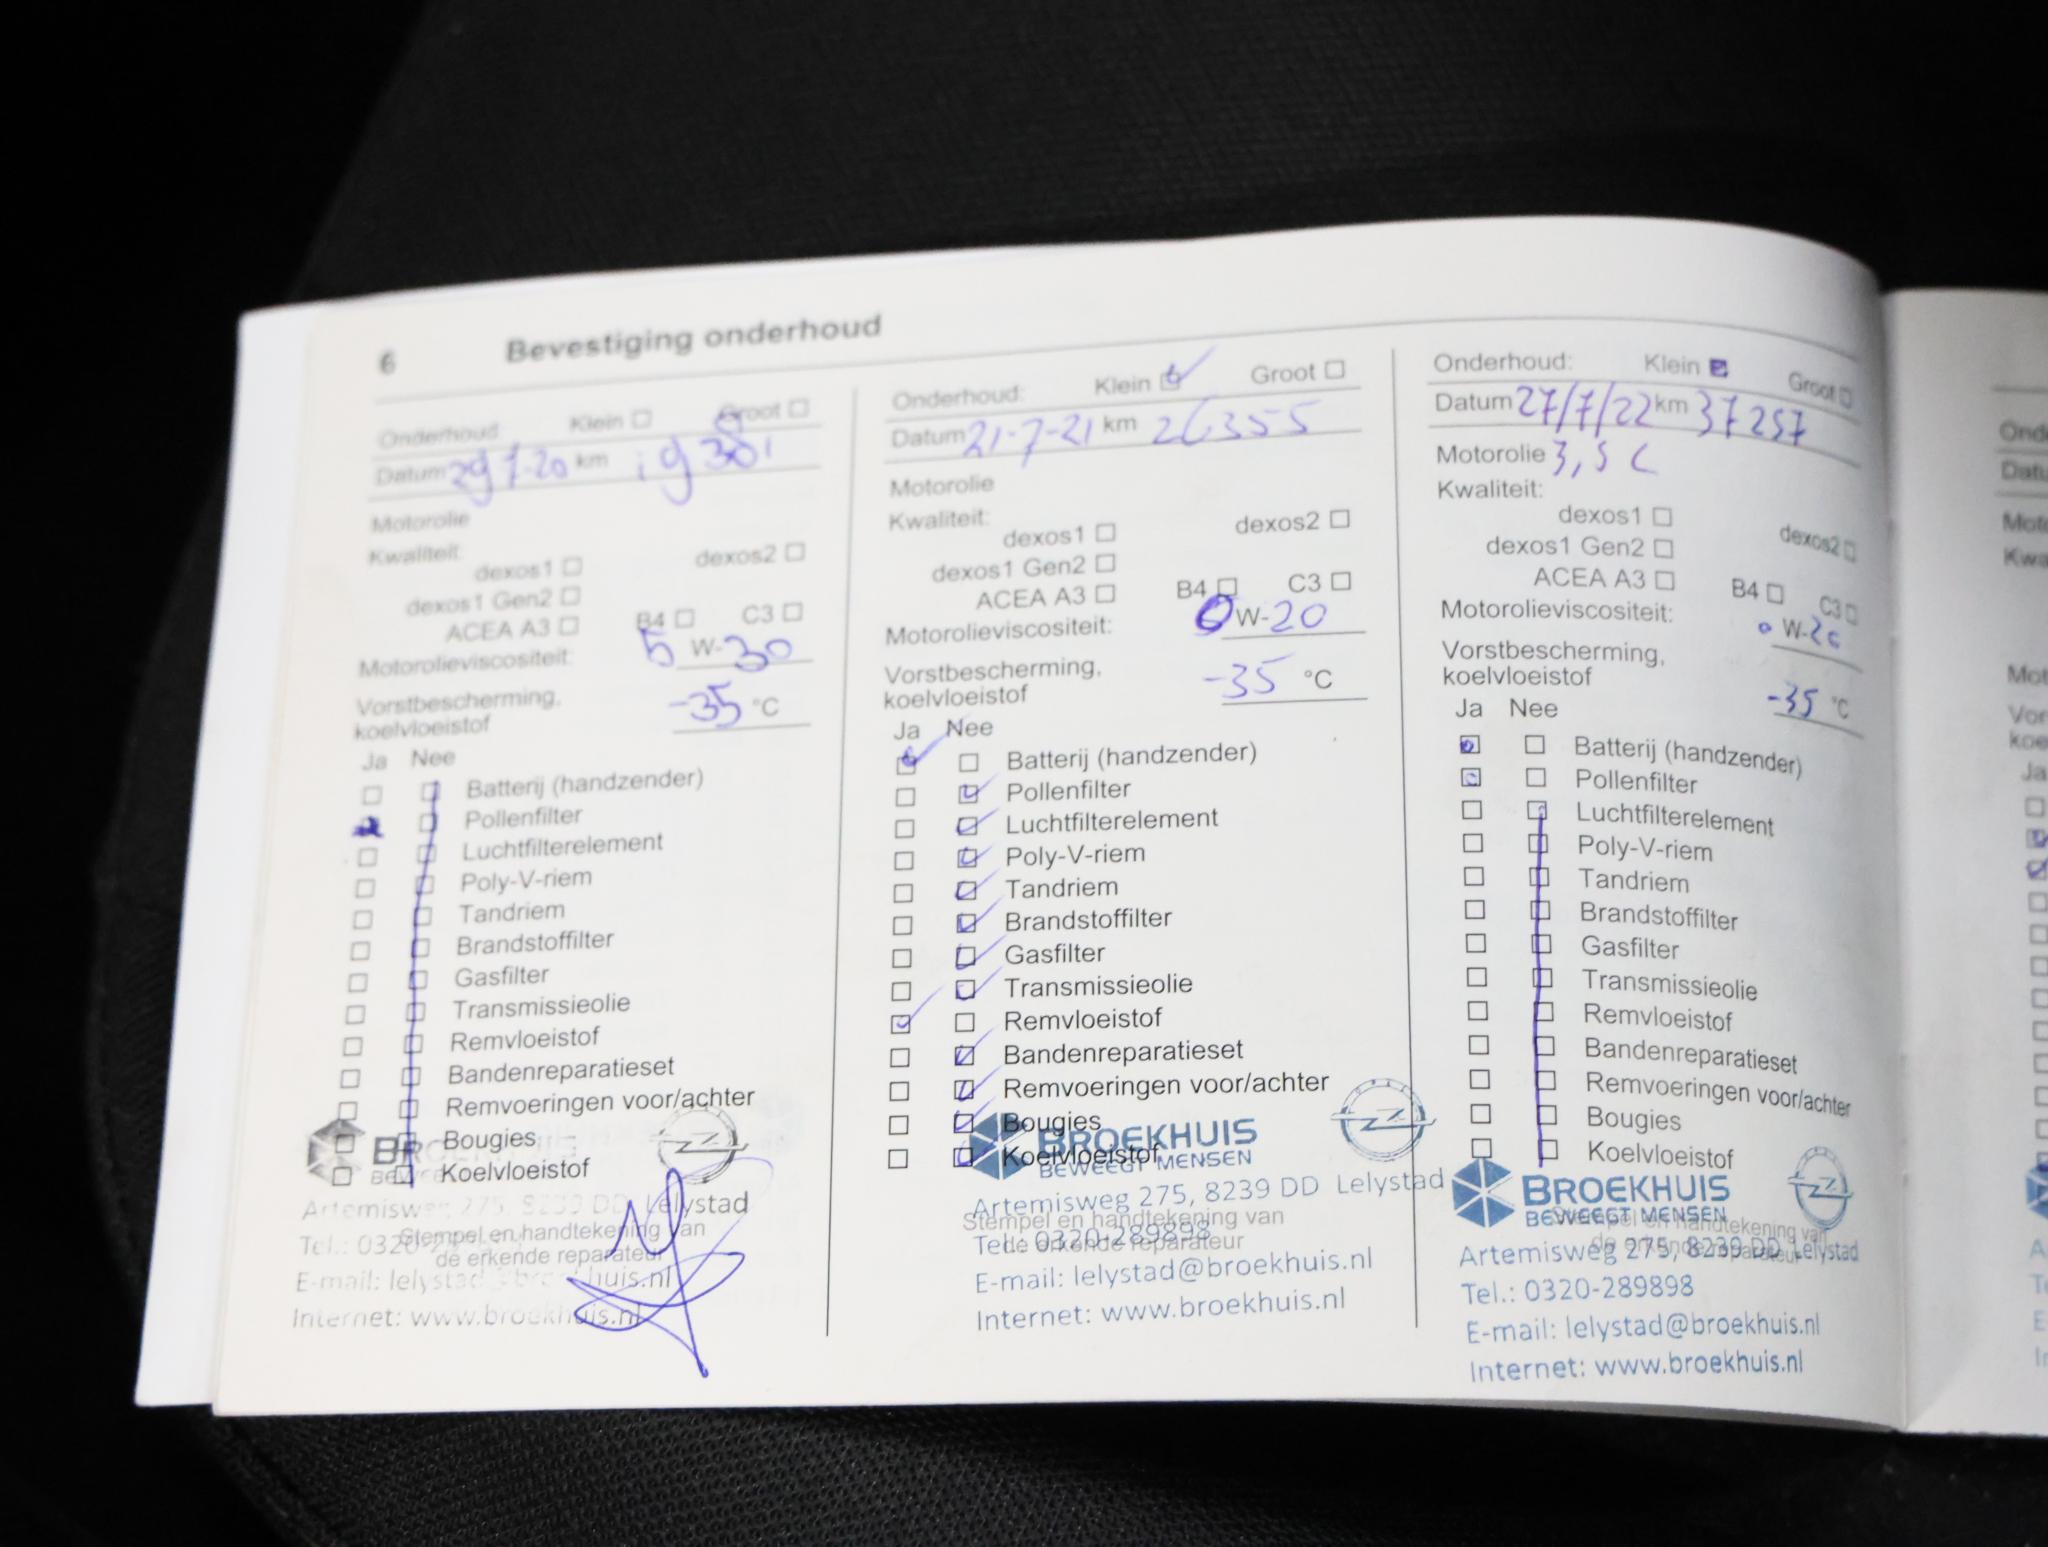 6 Bevestiging onderhoud
Onderhoud: Klein Groot
Datum 29 7-20 km 19381
Motorolie
Kwaliteit:
dexos1 dexos2
dexos1 Gen2
ACEA A3 B4 C3
Motorolieviscositeit: 5 W-30
Vorstbescherming,
koelvloeistof -35 °C
Ja Nee
Batterij (handzender)
Pollenfilter
Luchtfilterelement
Poly-V-riem
Tandriem
Brandstoffilter
Gasfilter
Transmissieolie
Remvloeistof
Bandenreparatieset
Remvoeringen voor/achter
Bougies
Koelvloeistof
Artemisweg 275, 8239 DD Lelystad
Stempel en handtekening van
Tel.: 0320-
de erkende reparateur
E-mail: lelystad@broekhuis.nl
Internet: www.broekhuis.nl
Onderhoud: Klein Groot
Datum 21-7-21 km 26355
Motorolie
Kwaliteit:
dexos1 dexos2
dexos1 Gen2
ACEA A3 B4 C3
Motorolieviscositeit: 0 W-20
Vorstbescherming,
koelvloeistof -35 °C
Ja Nee
Batterij (handzender)
Pollenfilter
Luchtfilterelement
Poly-V-riem
Tandriem
Brandstoffilter
Gasfilter
Transmissieolie
Remvloeistof
Bandenreparatieset
Remvoeringen voor/achter
Bougies
BROEKHUIS
Koelvloeistof
BEWEEGT MENSEN
Artemisweg 275, 8239 DD Lelystad
Stempel en handtekening van
Tel.: 0320-289898
de erkende reparateur
E-mail: lelystad@broekhuis.nl
Internet: www.broekhuis.nl
Onderhoud: Klein Groot
Datum 27/7/22 km 37257
Motorolie 3,5 L
Kwaliteit:
dexos1 dexos2
dexos1 Gen2
ACEA A3 B4 C3
Motorolieviscositeit: 0 W-20
Vorstbescherming,
koelvloeistof -35 °C
Ja Nee
Batterij (handzender)
Pollenfilter
Luchtfilterelement
Poly-V-riem
Tandriem
Brandstoffilter
Gasfilter
Transmissieolie
Remvloeistof
Bandenreparatieset
Remvoeringen voor/achter
Bougies
Koelvloeistof
BROEKHUIS
BEWEEGT MENSEN
Stempel en handtekening van
de erkende reparateur
Artemisweg 275, 8239 DD Lelystad
Tel.: 0320-289898
E-mail: lelystad@broekhuis.nl
Internet: www.broekhuis.nl